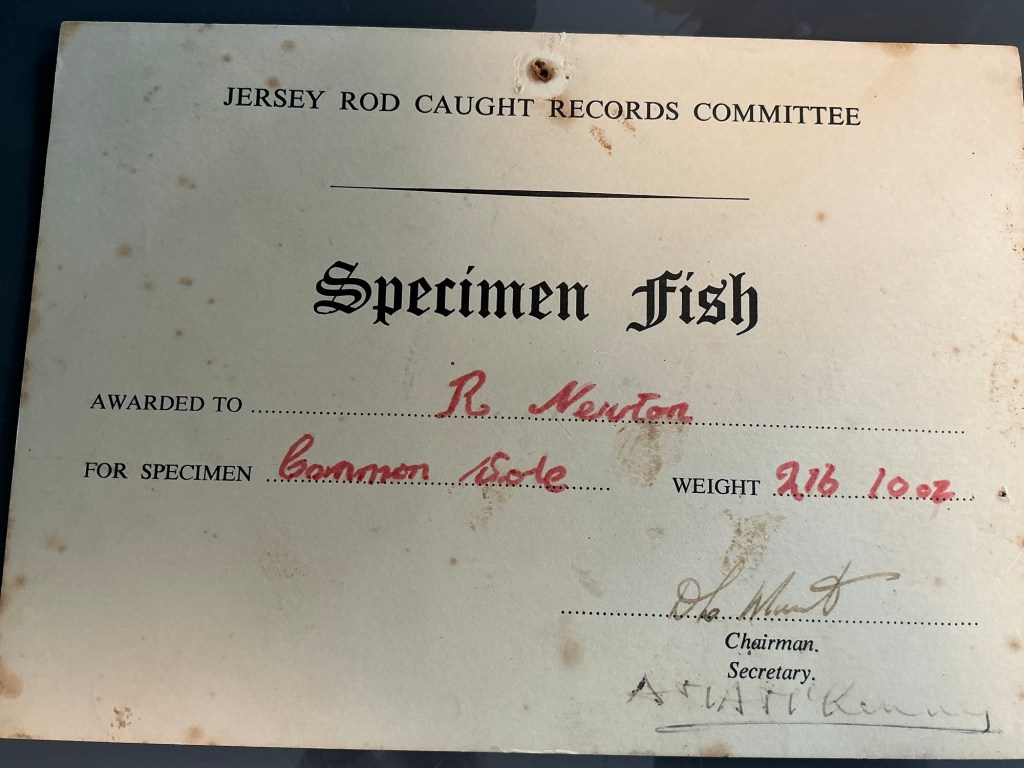 JERSEY ROD CAUGHT RECORDS COMMITTEE
Specimen Fish
AWARDED TO R Newton
FOR SPECIMEN Common Sole WEIGHT 2lb 10 oz
Chairman.
Secretary.